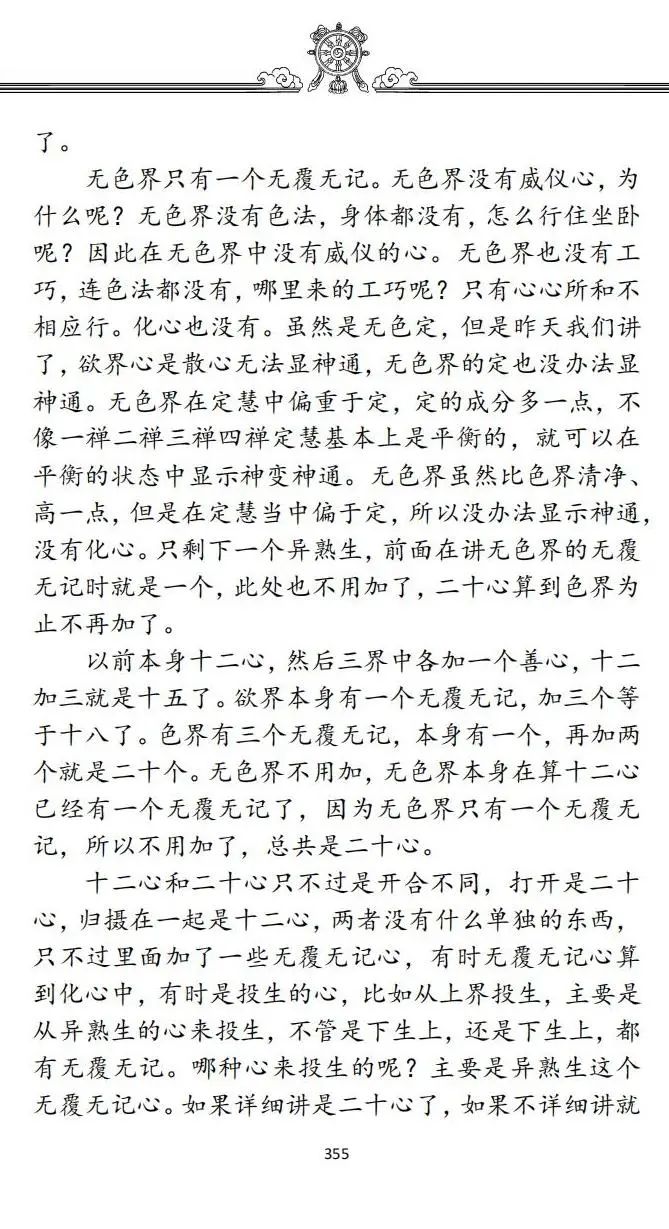 了。
无色界只有一个无覆无记。无色界没有威仪心，为
什么呢？无色界没有色法，身体都没有，怎么行住坐卧
呢？因此在无色界中没有威仪的心。无色界也没有工
巧，连色法都没有，哪里来的工巧呢？只有心心所和不
相应行。化心也没有。虽然是无色定，但是昨天我们讲
了，欲界心是散心无法显神通，无色界的定也没办法显
神通。无色界在定慧中偏重于定，定的成分多一点，不
像一禅二禅三禅四禅定慧基本上是平衡的，就可以在
平衡的状态中显示神变神通。无色界虽然比色界清净、
高一点，但是在定慧当中偏于定，所以没办法显示神通，
没有化心。只剩下一个异熟生，前面在讲无色界的无覆
无记时就是一个，此处也不用加了，二十心算到色界为
止不再加了。
以前本身十二心，然后三界中各加一个善心，十二
加三就是十五了。欲界本身有一个无覆无记，加三个等
于十八了。色界有三个无覆无记，本身有一个，再加两
个就是二十个。无色界不用加，无色界本身在算十二心
已经有一个无覆无记了，因为无色界只有一个无覆无
记，所以不用加了，总共是二十心。
十二心和二十心只不过是开合不同，打开是二十
心，归摄在一起是十二心，两者没有什么单独的东西，
只不过里面加了一些无覆无记心，有时无覆无记心算
到化心中，有时是投生的心，比如从上界投生，主要是
从异熟生的心来投生，不管是下生上，还是下生上，都
有无覆无记。哪种心来投生的呢？主要是异熟生这个
无覆无记心。如果详细讲是二十心了，如果不详细讲就
355